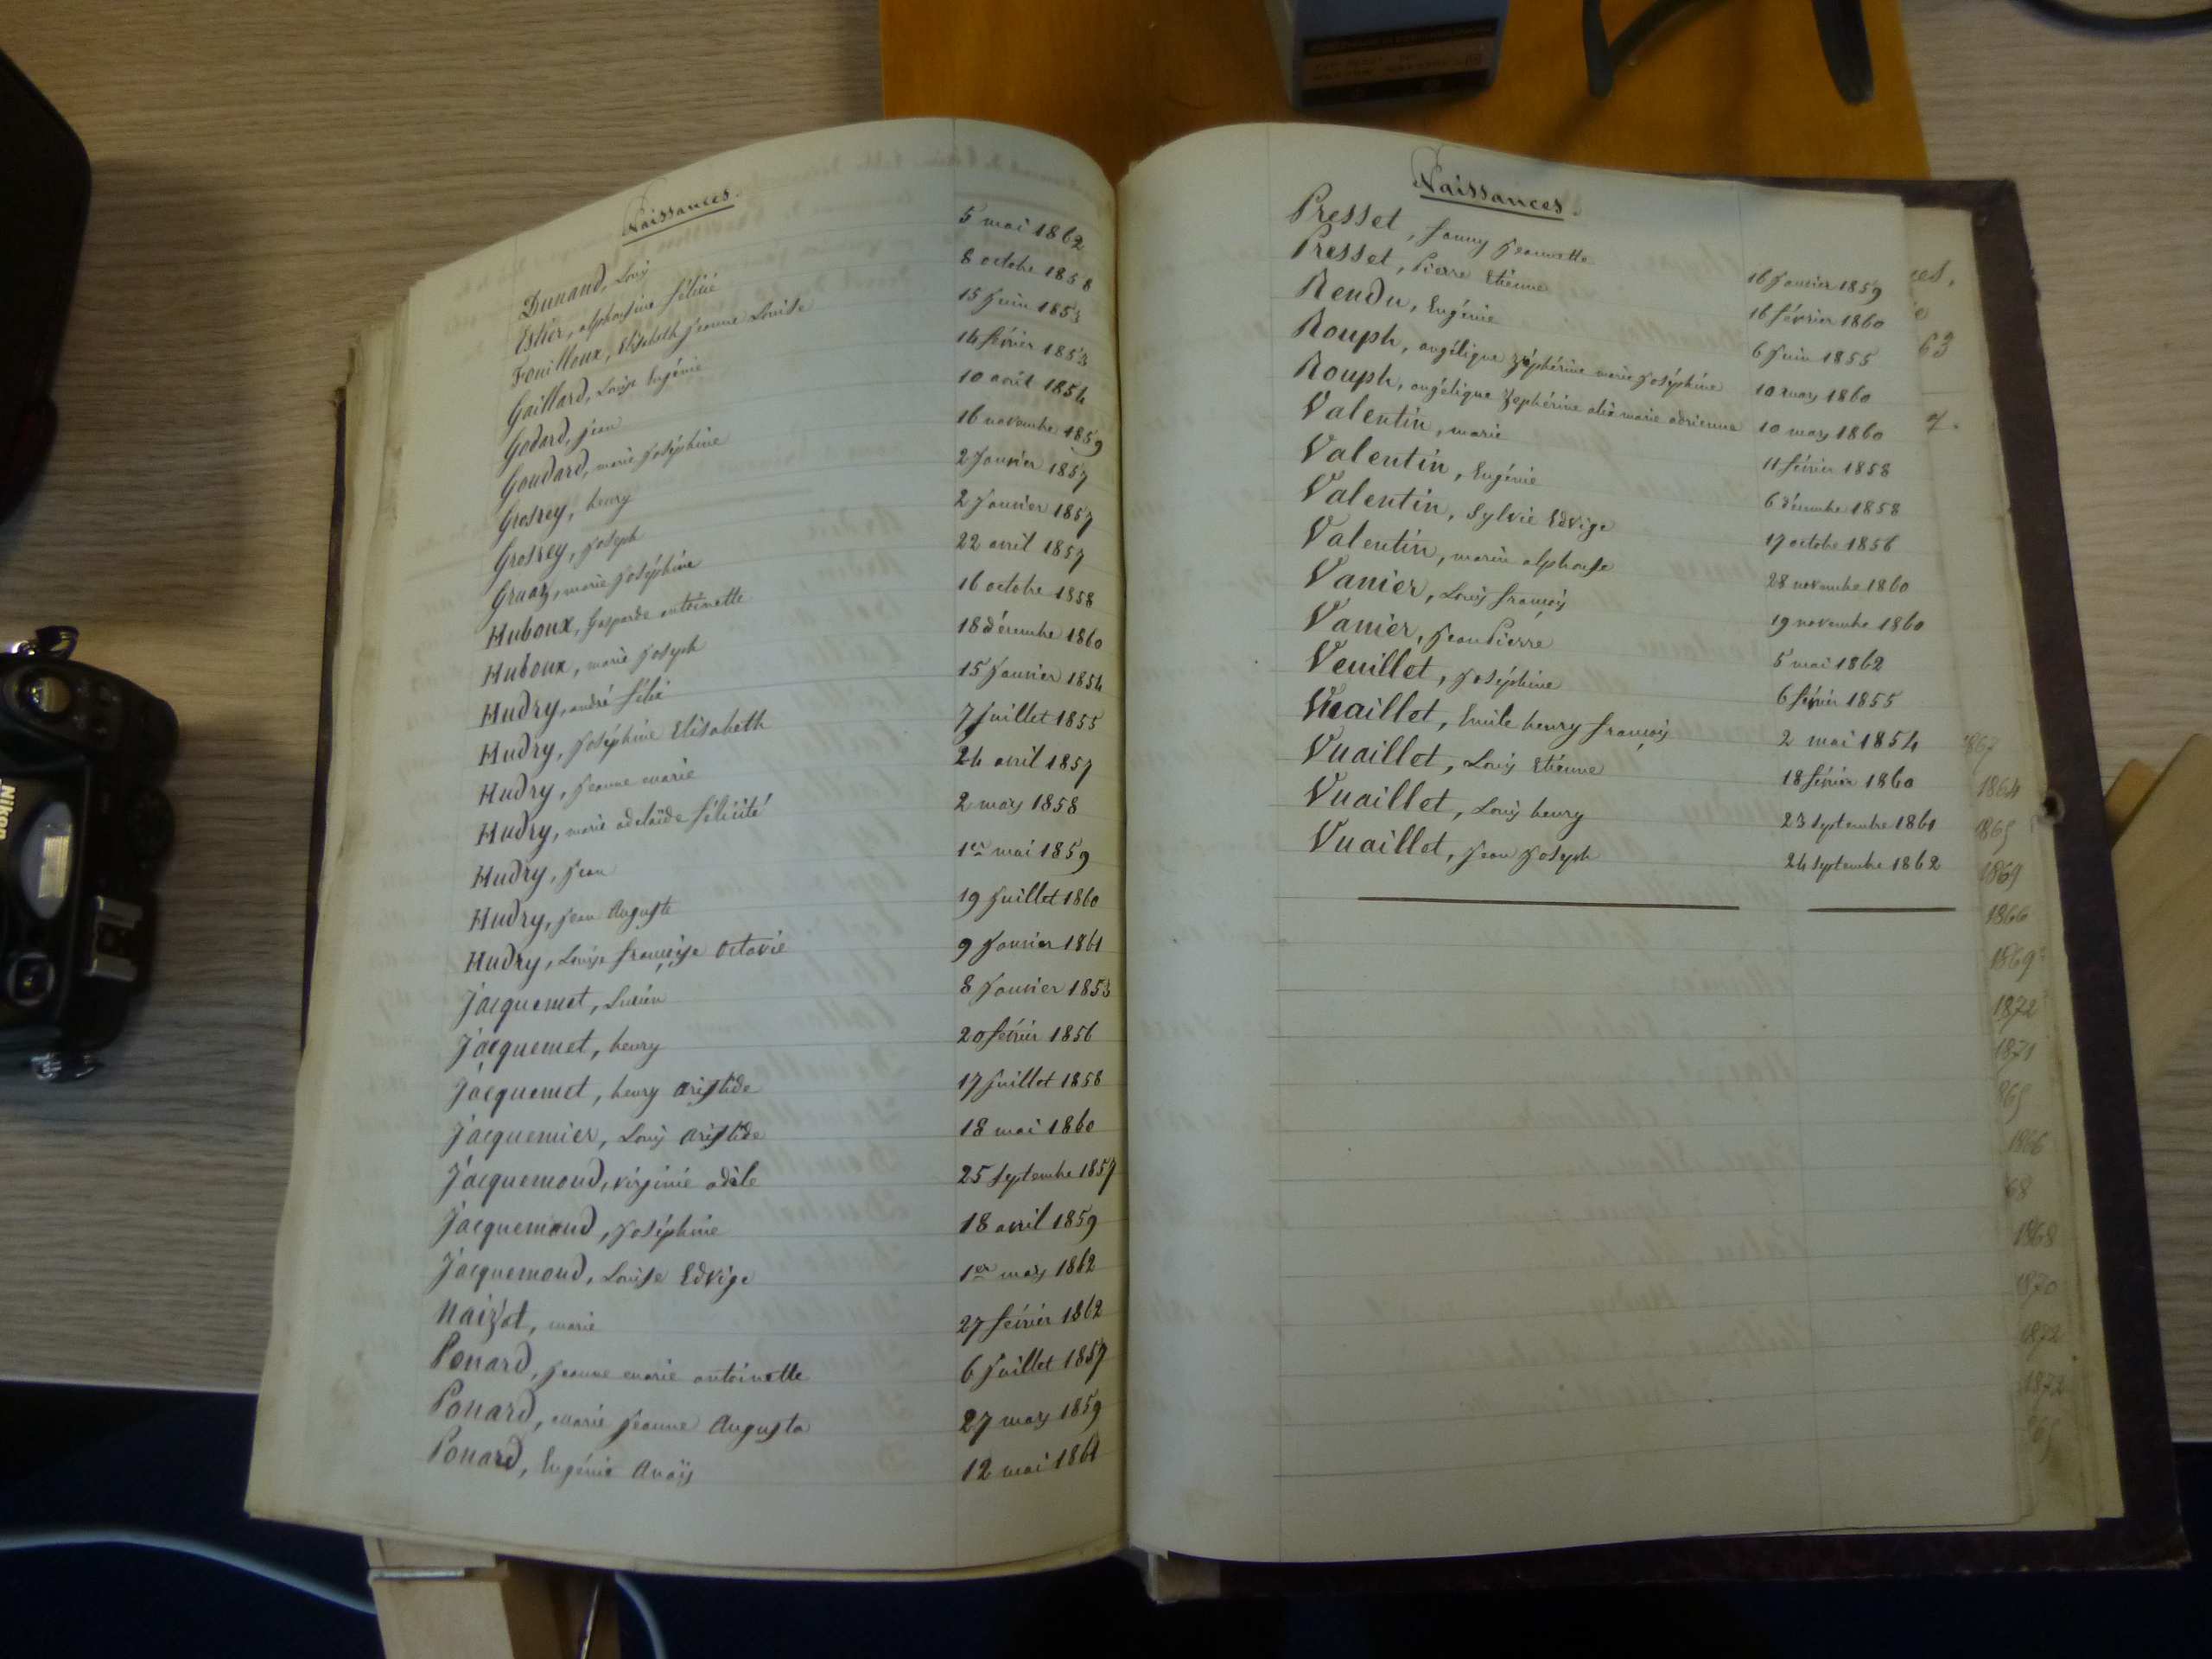 Naissances.
Dunand, Louis 5 mai 1862
Estier, alphonsine félicie 8 octobre 1858
Fouilloux, Elisabeth jeanne Louise 15 juin 1853
Gaillard, Louise Eugénie 14 février 1853
Godard, jean 10 août 1854
Goudard, marie joséphine 16 novembre 1859
Grosrey, henry 2 janvier 1857
Grosrey, joseph 2 janvier 1857
Graaz, marie joséphine 22 avril 1857
Huboux, Gasparde antoinette 16 octobre 1858
Huboux, marie joseph 18 décembre 1860
Hudry, andré félix 15 janvier 1854
Hudry, joséphine Elisabeth 7 juillet 1855
Hudry, jeanne marie 24 avril 1857
Hudry, marie adelaïde félicité 2 mars 1858
Hudry, jean 1er mai 1859
Hudry, jean Auguste 19 juillet 1860
Hudry, Louise françoise Octavie 9 janvier 1861
Jacquemet, Lucien 8 janvier 1853
Jacquemet, henry 20 février 1856
Jacquemet, henry aristide 17 juillet 1858
Jacquemier, Louis aristide 18 mai 1860
Jacquemoud, virginie adèle 25 septembre 1857
Jacquemoud, joséphine 18 avril 1859
Jacquemoud, Louise Edvige 1er mars 1862
Naizot, marie 27 février 1862
Ponard, jeanne marie antoinette 6 juillet 1857
Ponard, marie jeanne Augusta 27 mars 1859
Ponard, Eugénie Anaïs 12 mai 1861
Naissances.
Presset, fanny jeannette 16 janvier 1859
Presset, Pierre Etienne 16 février 1860
Rendu, Eugénie 6 juin 1855
Rouph, angélique zéphérine marie joséphine 10 mars 1860
Rouph, angélique zéphérine marie adrienne 10 mars 1860
Valentin, marie 11 février 1858
Valentin, Eugénie 6 décembre 1858
Valentin, Sylvie Edvige 17 octobre 1856
Valentin, marin alphonse 28 novembre 1860
Vanier, Louis françois 19 novembre 1860
Vanier, jean Pierre 5 mai 1862
Veuillet, joséphine 6 février 1855
Vuaillet, Emile henry françois 2 mai 1854
Vuaillet, Louis Etienne 18 février 1860
Vuaillet, Louis henry 23 septembre 1861
Vuaillet, jean joseph 24 septembre 1862
es.
63
7.
1867
1864
1865
1869
1866
1869
1872
1871
865
1866
68
1868
1870
1872
1872
65
NIKON